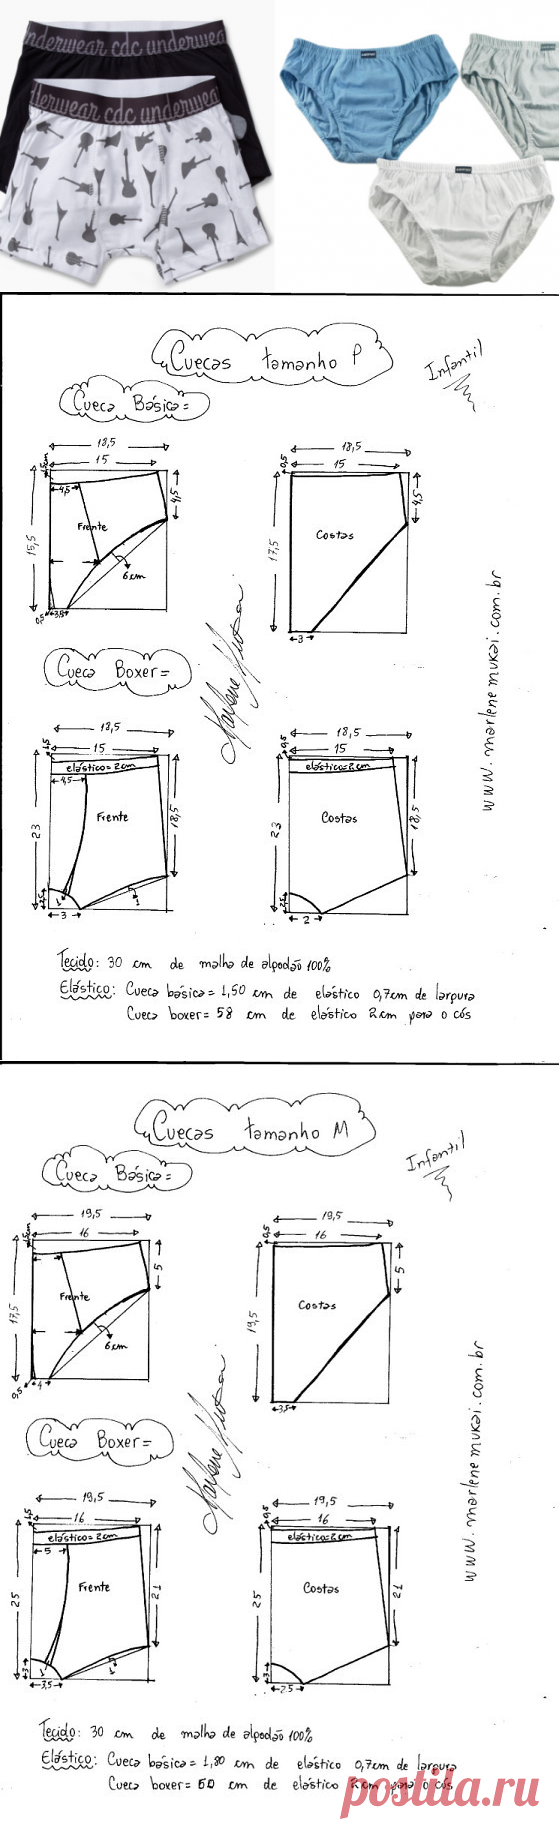 underwear cdc underwear
derwear cdc underwear
Cuecas tamanho P
Infantil
Cueca Básica=
18,5
15
1,5cm
4,5
4,5
15,5
Frente
6cm
0,5
3,5
18,5
0,5
15
4,5
17,5
Costas
3
Marlene Mukai
www.marlenemukai.com.br
Cueca Boxer=
18,5
1,5
15
elástico=2cm
4,5
23
Frente
18,5
2,5
1
1
3
18,5
0,5
15
elástico=2cm
23
Costas
18,5
2,5
2
Tecido: 30 cm de malha de algodão 100%
Elástico: Cueca básica= 1,50 cm de elástico 0,7cm de largura
Cueca boxer= 58 cm de elástico 2cm para o cós
Cuecas tamanho M
Infantil
Cueca Básica=
19,5
16
1,5cm
5
17,5
Frente
6cm
0,5
4
19,5
0,5
16
5
19,5
Costas
3,5
Marlene Mukai
www.marlenemukai.com.br
Cueca Boxer=
19,5
1,5
16
elástico=2cm
5
25
Frente
21
3
1
1
3,5
19,5
0,5
16
elástico=2cm
25
Costas
21
3
2,5
Tecido: 30 cm de malha de algodão 100%
Elástico: Cueca básica= 1,80 cm de elástico 0,7cm de largura
Cueca boxer= 60 cm de elástico 2cm para o cós
postila.ru